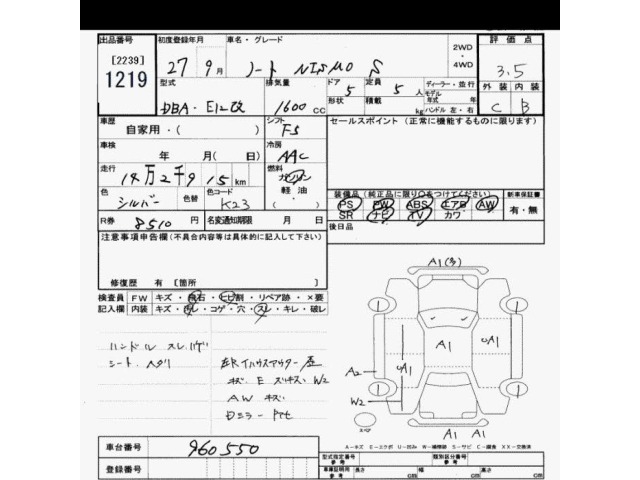 出品番号 初度登録年月 車名・グレード 2WD・4WD 評価点
[2239] 1219 27年 9月 ノート NISMO S 3.5
型式 排気量 ドア 定員 ディーラー・並行
DBA-E12改 1600cc 5 5人 モデル 年式 年
形状 積載 kg ハンドル 左・右
外装 内装
C B
車歴 シフト セールスポイント (正常に機能するものに限ります)
自家用・( ) F5
車検 冷房
年 月(日) AAC
走行 燃料
14万2千9 15 km ガソリン
軽油
色 色替 色コード 装備品(純正品に限り○をつけてください) 新車保証書
シルバー K23 PS PW ABS エアB AW 有・無
SR ナビ TV カワ
R券 8510円 名変通知期限 月 日 後日品
注意事項申告欄(不具合内容等は具体的に記入して下さい)
修復歴 有 [箇所 ]
検査員 FW キズ・飛石・ヒビ割・リペア跡・×要
記入欄 内装 キズ・汚レ・コゲ・穴・スレ・キレ・破レ
A1(多)
A1
A1
A1
A2
W2
A1 A1
スペア
ハンドル スレ ハゲ
シート ヘタリ
キズ E W2
AW キズ
Dミラー
A-キズ E-エクボ U-凹み W-補修跡 S-サビ C-腐食 XX-交換済
車台番号 960550
登録番号
型式指定番号 参考 類別区分番号 参考
車庫証明用 参考 長さ cm 幅 cm 高さ cm